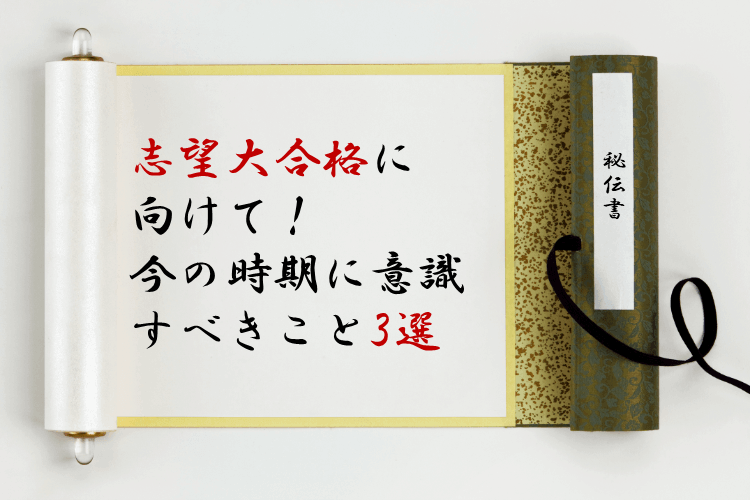 志望大合格に
向けて！
今の時期に意識
すべきこと3選
秘伝書